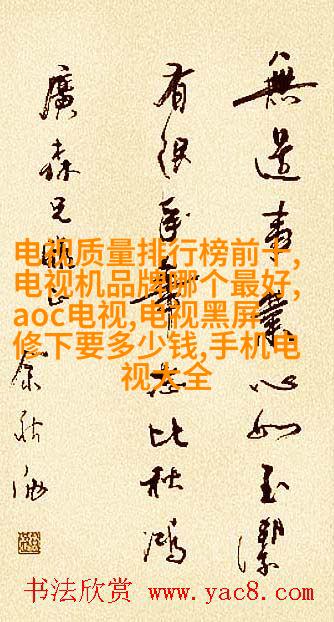 無邊事業心如玉潔
有限年華志比秋鴻
廣森兄雅正
电视质量排行榜前十,
电视机品牌哪个最好,
aoc电视,电视黑屏
修下要多少钱,手机电
视大全
书法欣赏 www.yac8.com